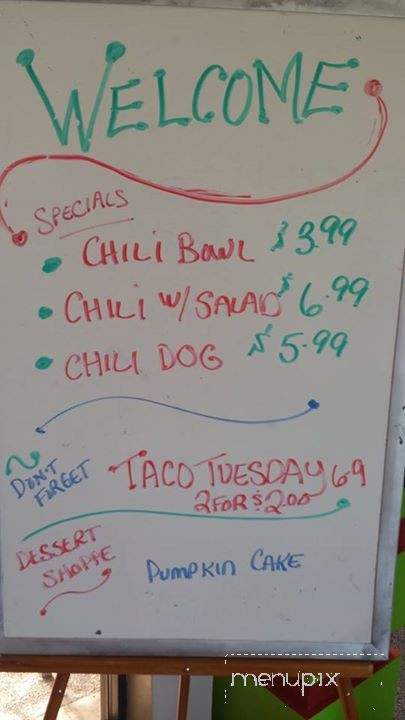 WELCOME
SPECIALS
• CHILI BOWL $3.99
• CHILI W/SALAD $6.99
• CHILI DOG $5.99
DON'T
FORGET
TACO TUESDAY 6-9
2 FOR $2.00
DESSERT
SHOPPE
PUMPKIN CAKE
menupix